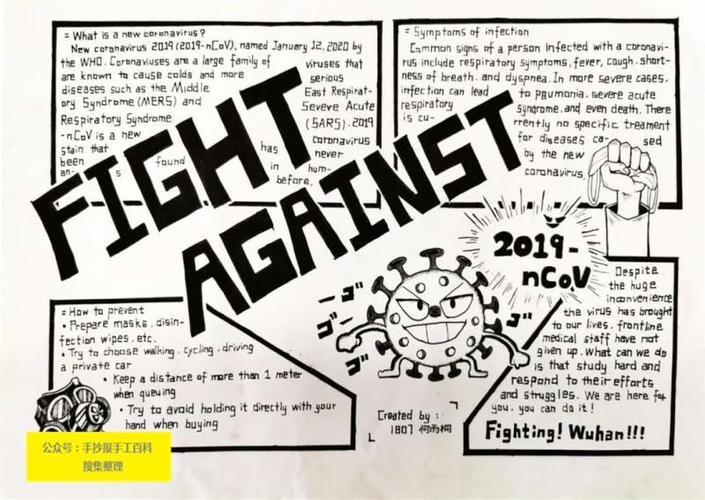 = What is a new coronavirus?
New coronavirus 2019 (2019-nCoV), named January 12, 2020 by
the WHO. Coronaviuses are a large family of viruses that
are known to cause colds and more serious
diseases such as the Middle East Respirat-
ory Syndrome (MERS) and Seveve Acute
Respiratory Syndrome (SARS). 2019
-nCoV is a new coronavirus
stain that has never
been found in hum-
an- s before.
= Symptoms of infection
Common signs of a person infected with a coronavi-
rus include respiratory symptoms, fever, cough, short-
ness of breath, and dyspnea. In more severe cases,
infection can lead to paumonia, severe acute
respiratory syngrome, and even death. There
is cu- rrently no specific treament
for diseases ca- sed
by the new
coronavirus.
FIGHT
AGAINST
2019-
nCoV
= How to prevent
• Prepare masks, disin-
fection wipes, etc.
• Try to choose walking, cycling, driving
a private car
• Keep a distance of more than 1 meter
when queuing
• Try to avoid holding it directly with your
hand when buying
ーゴ゛
ーゴ゛
ゴ゛
ゴ゛
Created by :
1807 何雨桐
Despite
the huge
inconvenience
the virus has brought
to our lives, frontline
medical staff have not
given up. What can we do
is that study hard and
respond to their efforts
and struggles. We are here for
you, you can do it!
Fighting! Wuhan!!!
公众号：手抄报手工百科
搜集整理